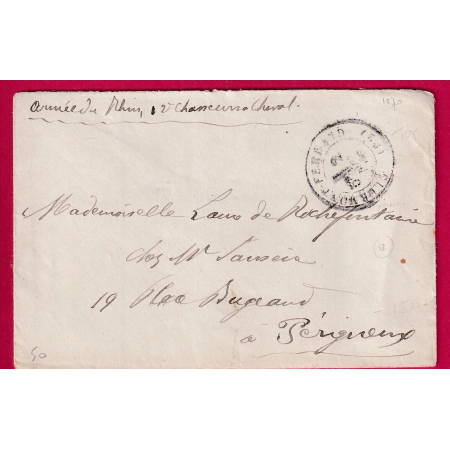 armée du Rhin, 12e chasseurs à cheval.
1870
CLERMONT-FERRAND (63)
Mademoiselle Laure de Rochefontaine
chez Mr
19 Place Bugeaud
à Périgueux
50